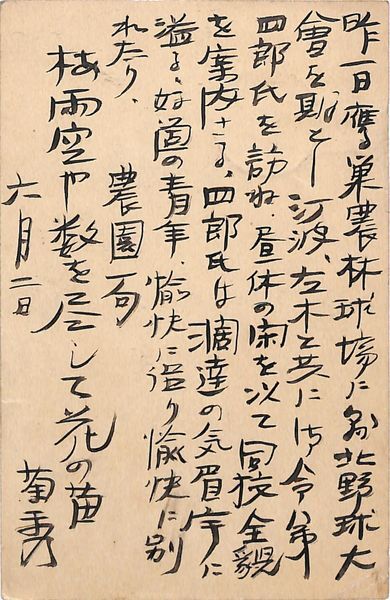 昨一日鷹巣農林球場に於北野球大
會を期とし 汀波、左木と共に御令弟
四郎氏を訪ね、昼休の閑を以て同校全貌
を案内さる、四郎氏は濶達の気眉宇に
溢る、好箇の青年、愉快に逢り愉快に別
れたり、
農園一句
梅雨空や数を尽して花の苗
六月二日
菊秀